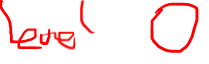 Level 0